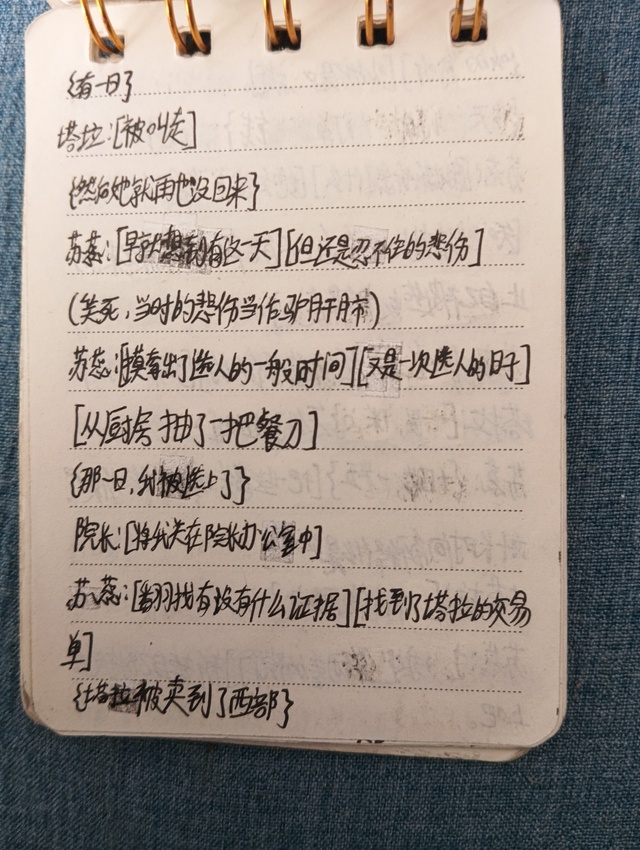 {有一日}
塔拉:[被叫走]
{然后她就再也没回来}
苏蕊:[早就想到有这一天][但还是忍不住的悲伤]
(笑死,当时的悲伤当作驴肝肺)
苏蕊:[摸索出了选人的一般时间][又是一次选人的日子]
[从厨房抽了一把餐刀]
{那一日,我被选上了}
院长:[将我关在院长办公室中]
苏蕊:[翻找有没有什么证据][找到了塔拉的交易
单]
{塔拉被卖到了西部}